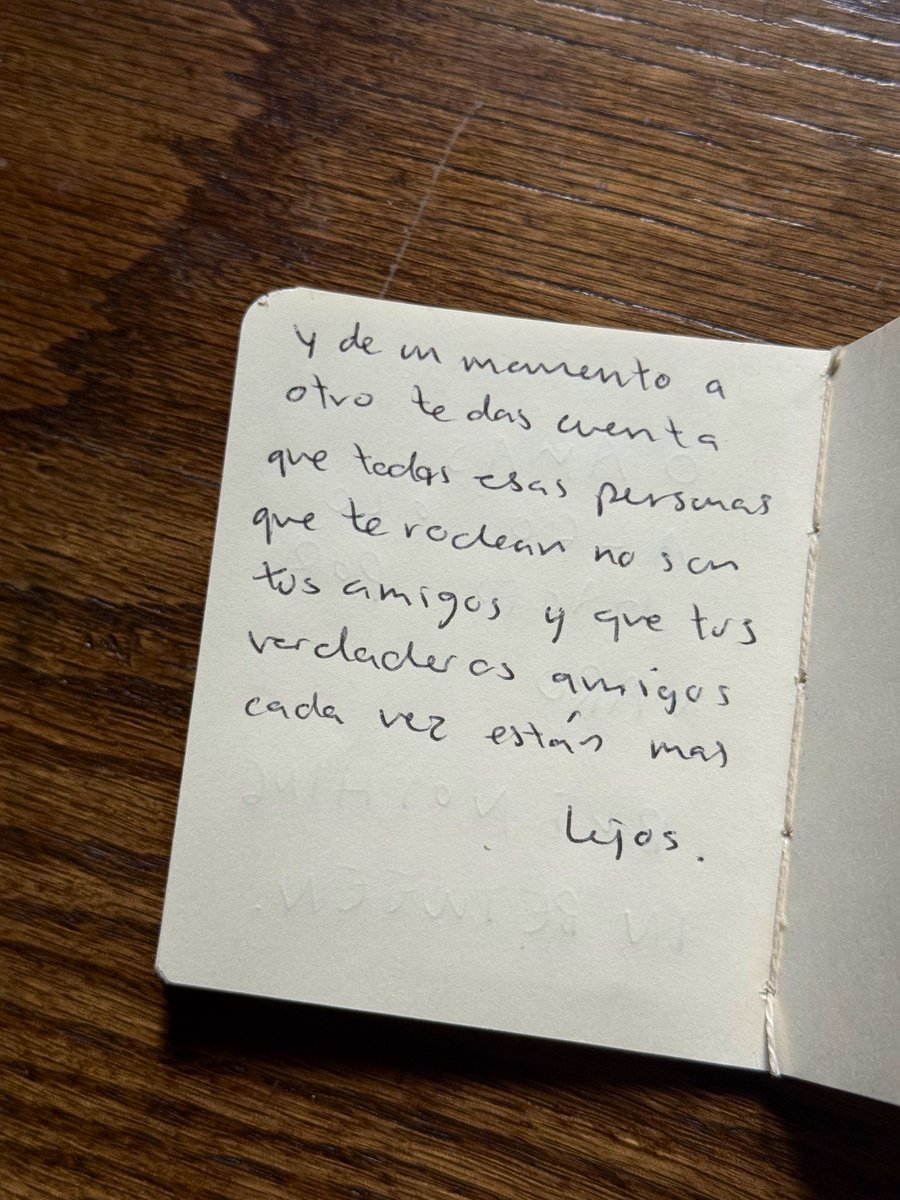 y de un momento a
otro te das cuenta
que todas esas personas
que te rodean no son
tus amigos y que tus
verdaderos amigos
cada vez están mas
lejos.
NOTHING
IN BETWEEN.